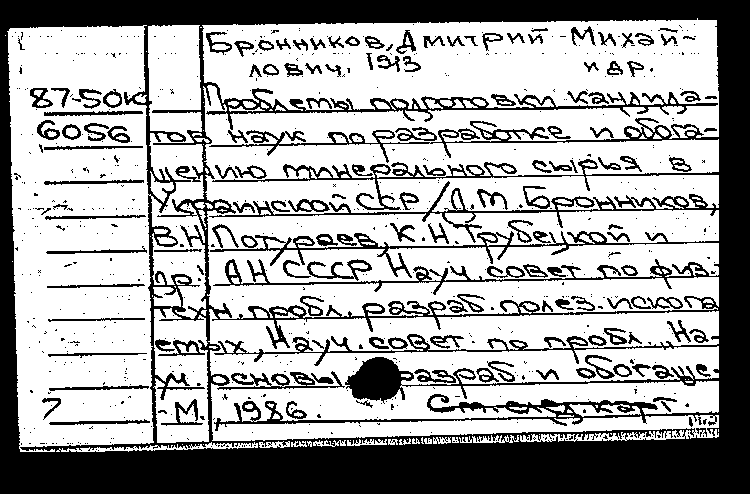 Бронников, Дмитрий Михай-
лович. 1913 и др.
87-50к Проблемы подготовки кандида-
6056 тов наук по разработке и обога-
щению минерального сырья в
Украинской ССР / Д.М. Бронников,
В.Н. Потураев, К.Н. Трубецкой и
др.; АН СССР, Науч. совет по физ.-
техн. пробл. разраб. полез. ископа
емых, Науч. совет по пробл. „На-
уч. основы разраб. и обогаще-
7 - М., 1986. См. след. карт.